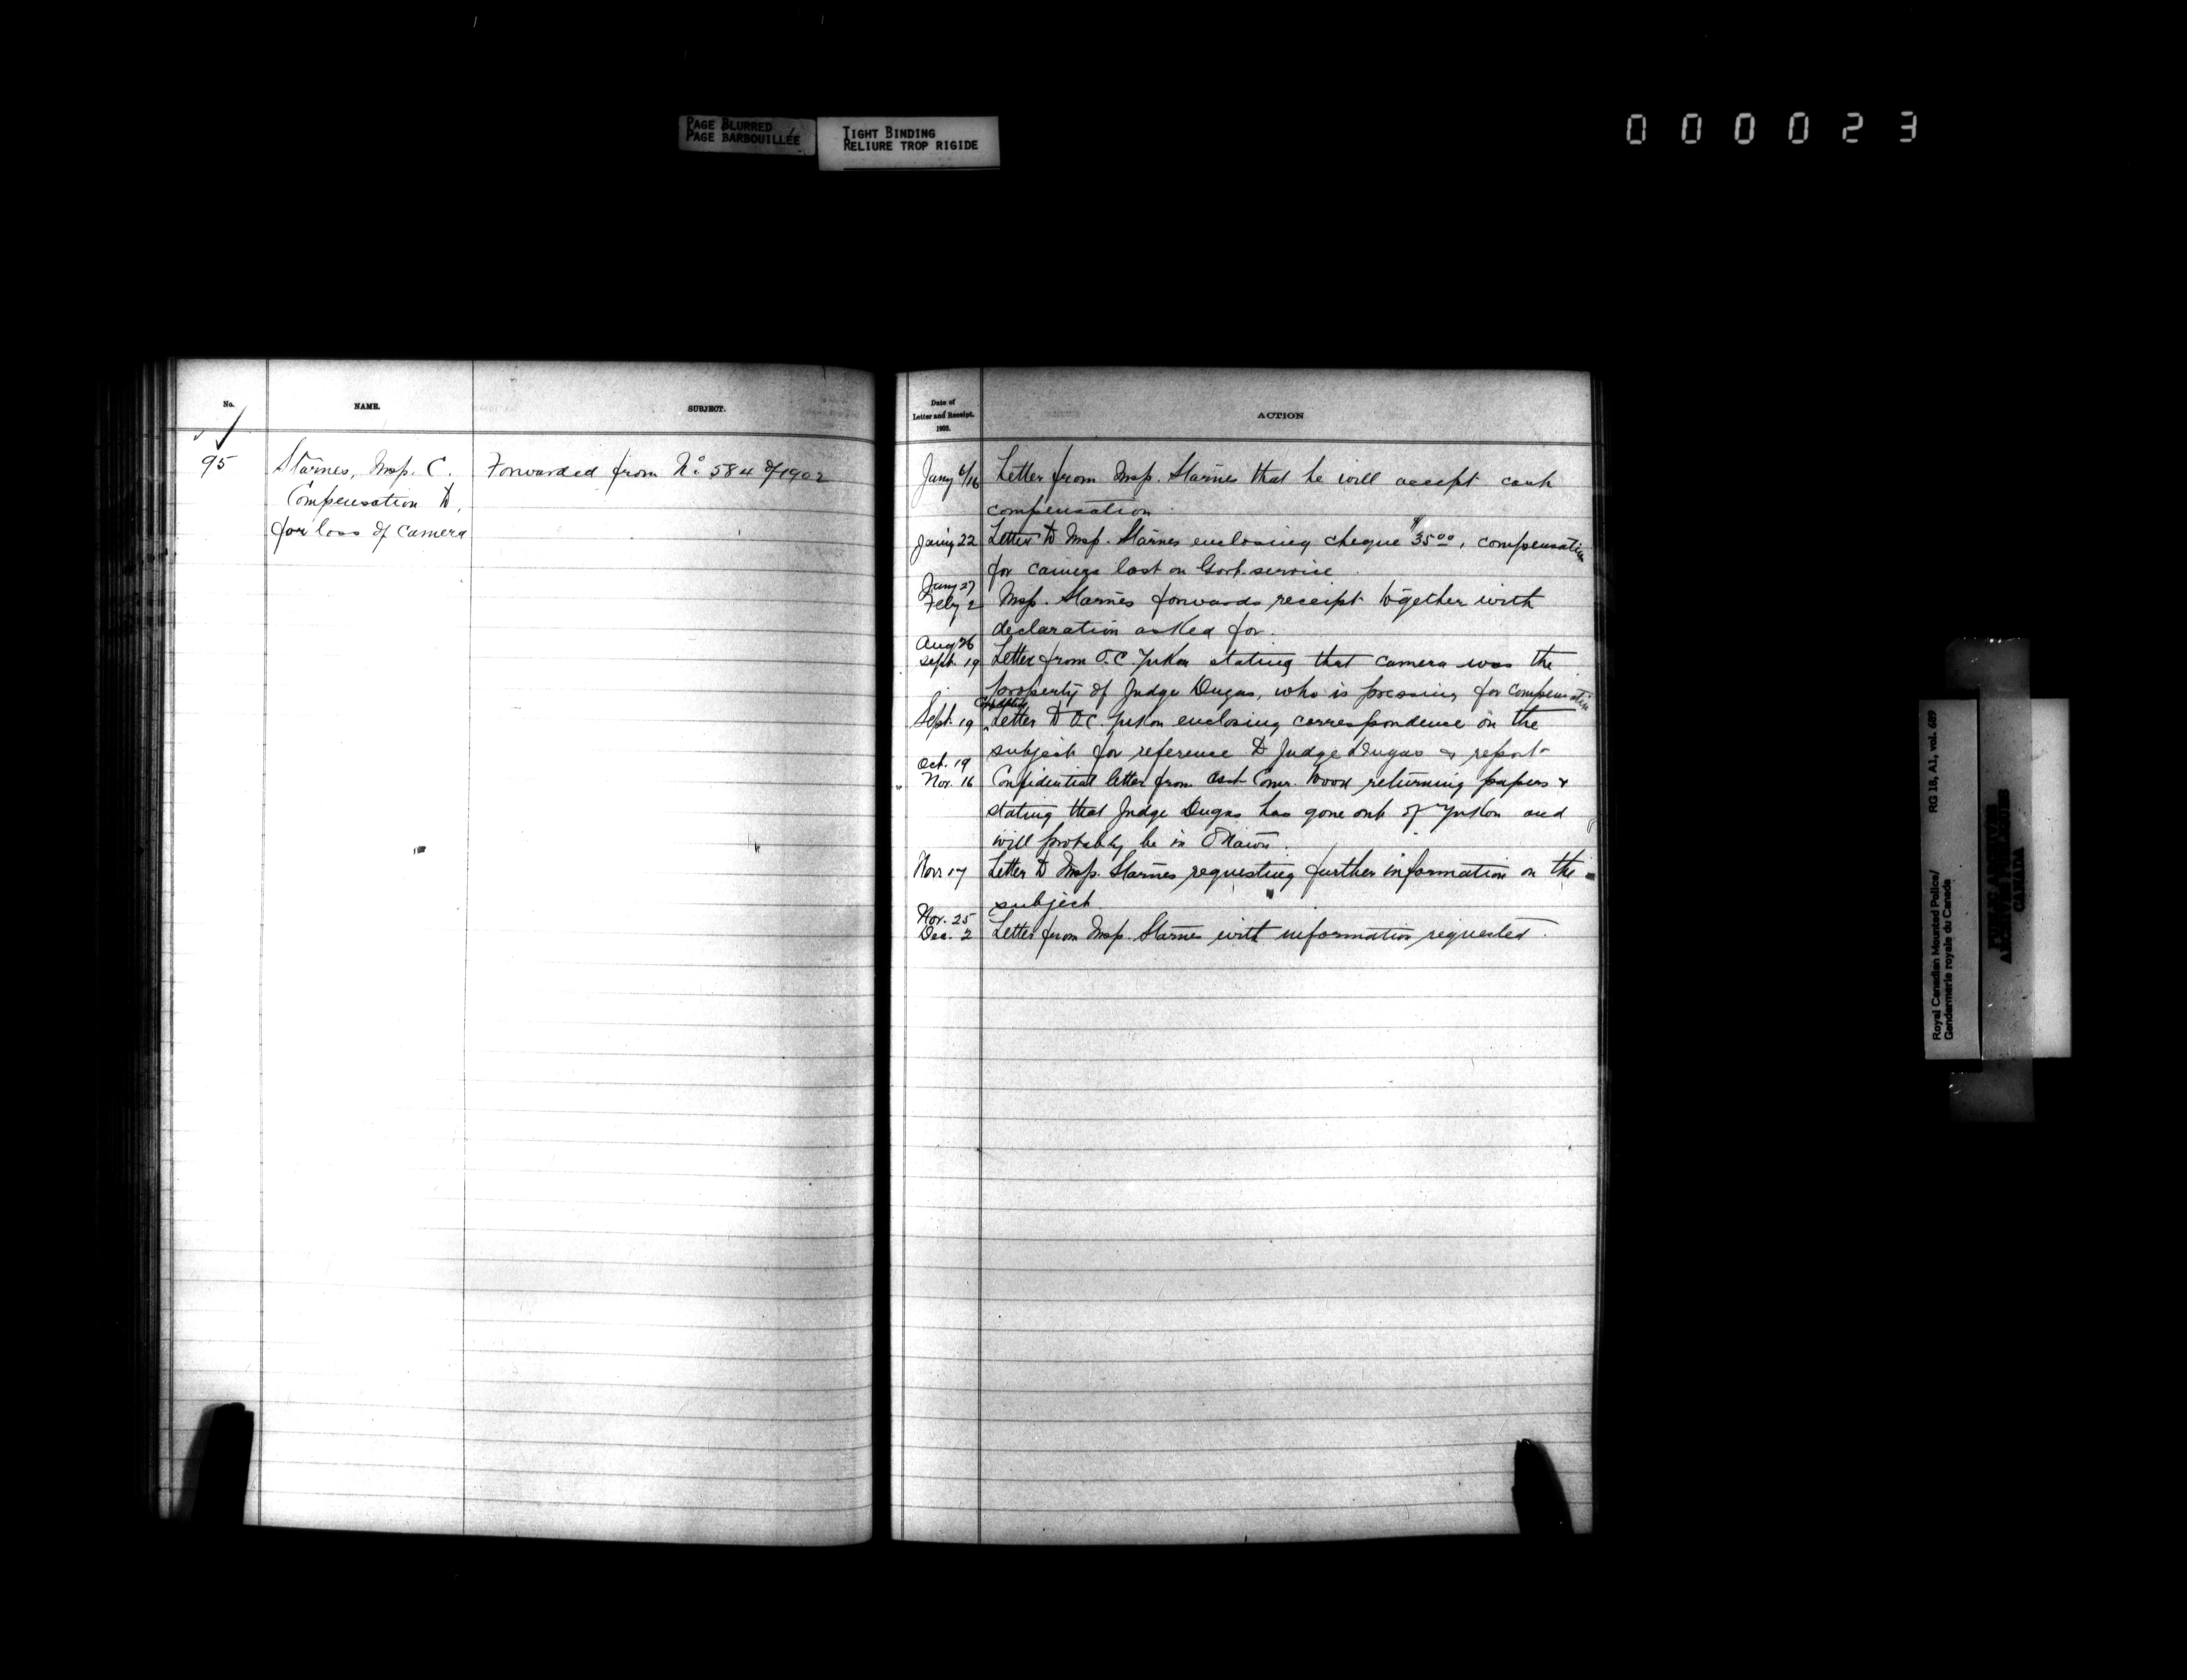 PAGE BLURRED
PAGE BARBOUILLÉE
TIGHT BINDING
RELIURE TROP RIGIDE
000023
No.
NAME.
SUBJECT.
95
Starnes, Insp. C.
Compensation to,
for loss of camera
Forwarded from No. 584 of 1902
Date of
Letter and Receipt.
1903.
ACTION
Jany 6/16 Letter from Insp. Starnes that he will accept cash
compensation.
Jany 22 Letter to Insp. Starnes enclosing cheque $35.00, compensation
for camera lost on Govt. service.
Jany 27
Feby 2 Insp. Starnes forwards receipt together with
declaration asked for.
Aug 26
Sept. 19 Letter from O.C. Yukon stating that camera was the
property of Judge Dugas, who is pressing for compensation
Sept. 19 Letter to O.C. Yukon enclosing correspondence on the
subject for reference to Judge Dugas & report
Oct. 19
Nov. 16 Confidential letter from Asst Comr. Wood returning papers &
stating that Judge Dugas has gone out of Yukon and
will probably be in Ottawa.
Nov. 17 Letter to Insp. Starnes requesting further information on the
subject.
Nov. 25
Dec. 2 Letter from Insp. Starnes with information requested.
Royal Canadian Mounted Police/
Gendarmerie royale du Canada
RG 18, A1, vol. 689
PUBLIC ARCHIVES
ARCHIVES PUBLIQUES
CANADA